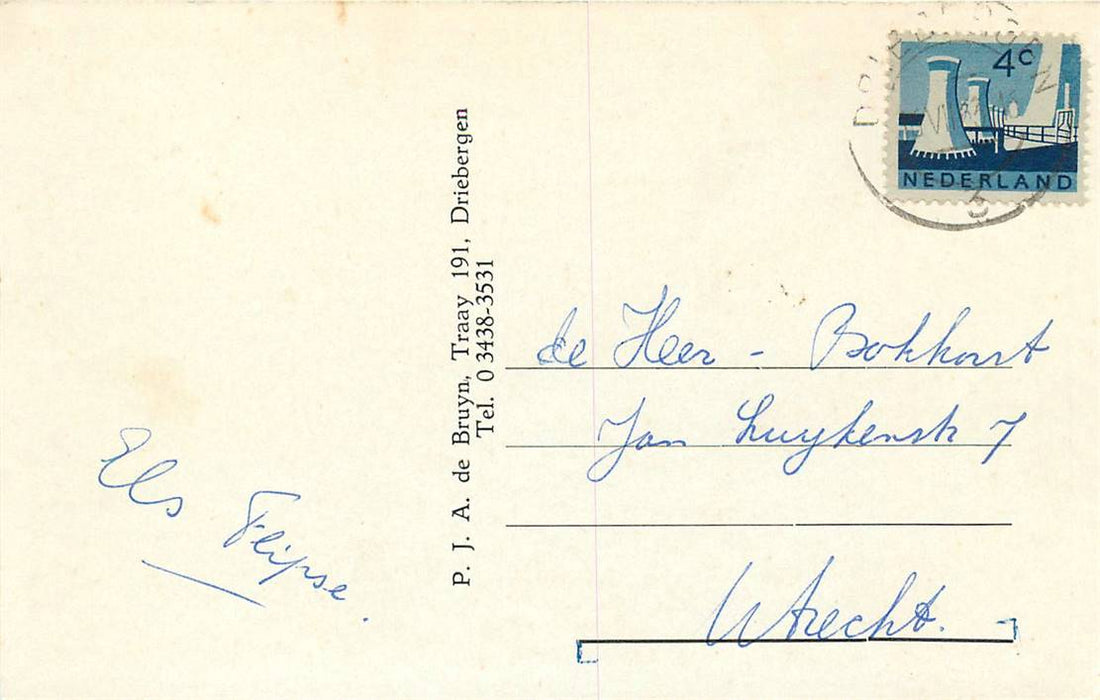 4c
NEDERLAND
P. J. A. de Bruyn, Traay 191, Driebergen
Tel. 0 3438-3531
de Heer - Bokhorst
Jan Luykenstr 7
Utrecht.
Els Flipse.